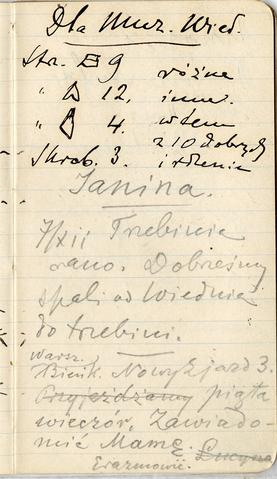 Dla Muz. Wied.
Sta. 9 różne
" 12. inne.
" 4. w tem
Skrob. 3. z 10 dobrych
i rdzenie
Janina.
7/XII Trzebinia
rano. Dobrześmy
spali od Wiednia
do Trzebini.
Warsz.
Bieik. Nowy Zjazd 3.
Przyjeżdżamy piąta
wieczór. Zawiado-
mić Mamę. Lucyna
Erazmowic.